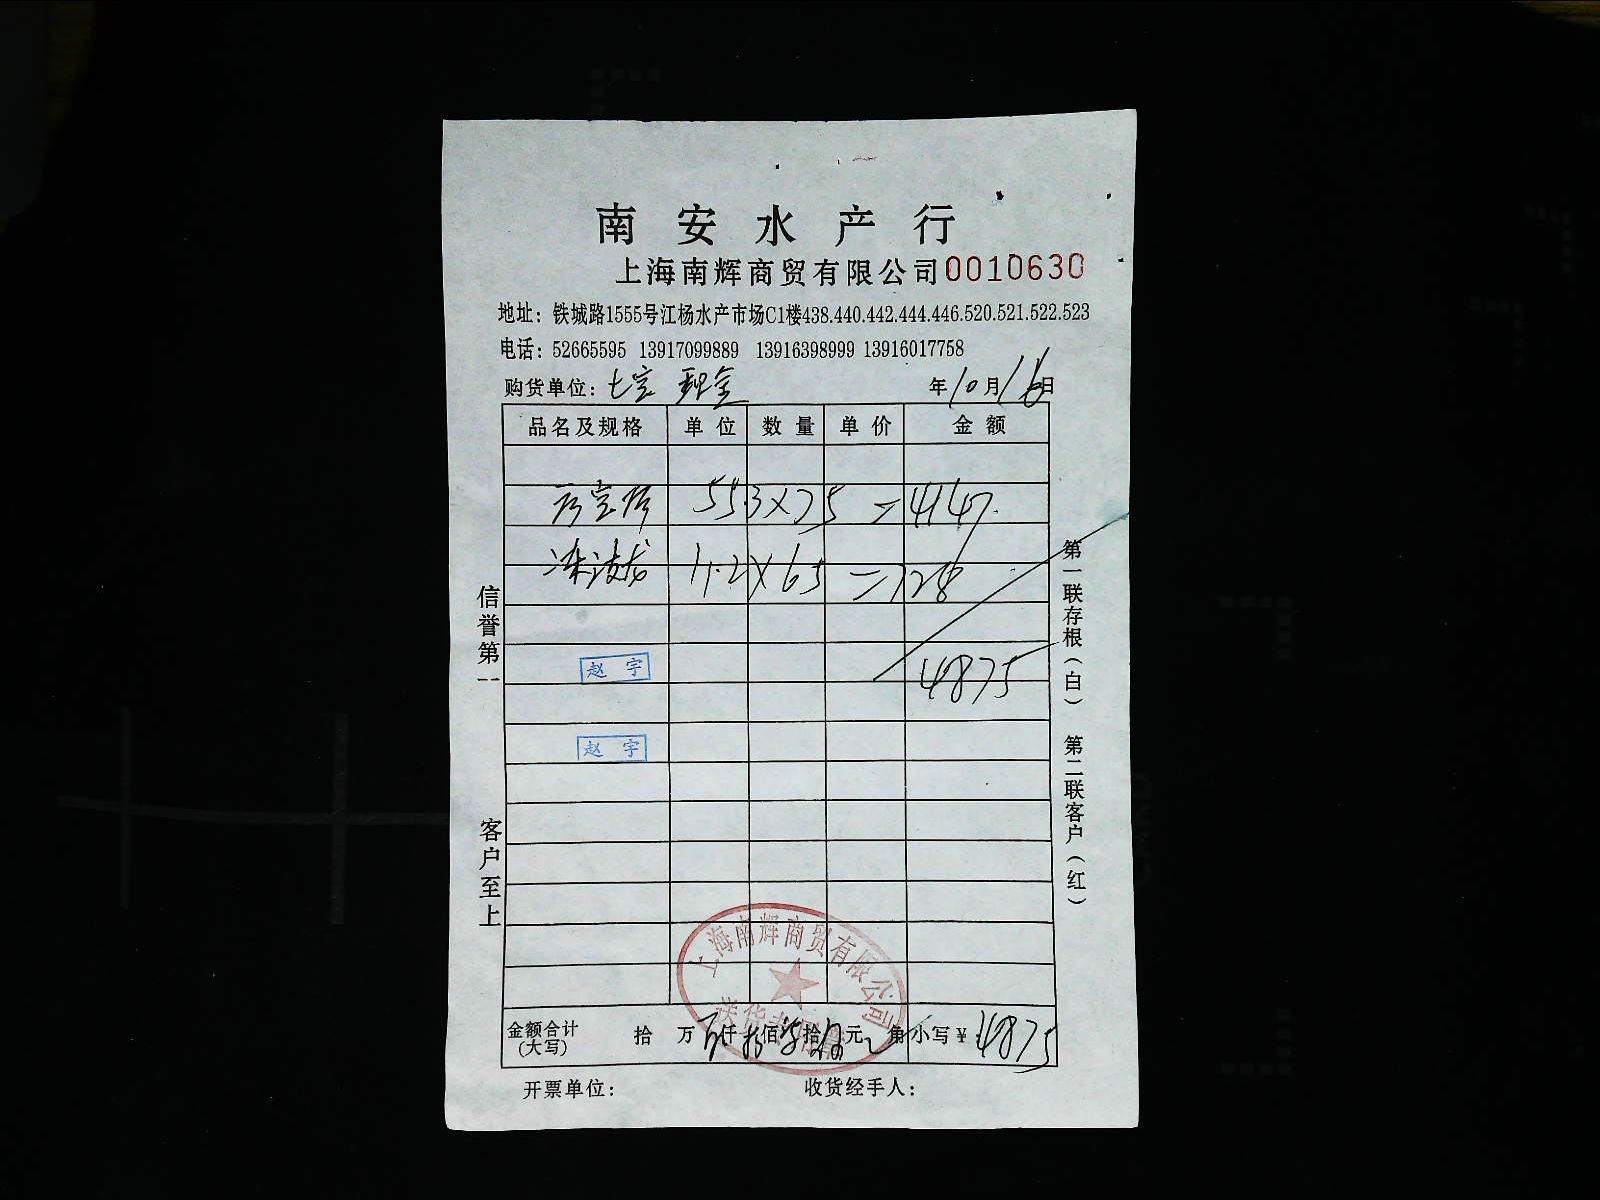 南安水产行
上海南辉商贸有限公司 0010630
地址：铁城路1555号江杨水产市场C1楼438.440.442.444.446.520.521.522.523
电话：52665595 13917099889 13916398999 13916017758
购货单位：七宝 现金 年10月16日
品名及规格 单位 数量 单价 金额
55.3×75=4147.
11.2×65=728
4875
赵宇
赵宇
信誉第一
客户至上
第一联存根（白）
第二联客户（红）
上海南辉商贸有限公司
金额合计（大写） 拾 万 仟 佰 拾 元 角 小写￥4875
开票单位： 收货经手人：